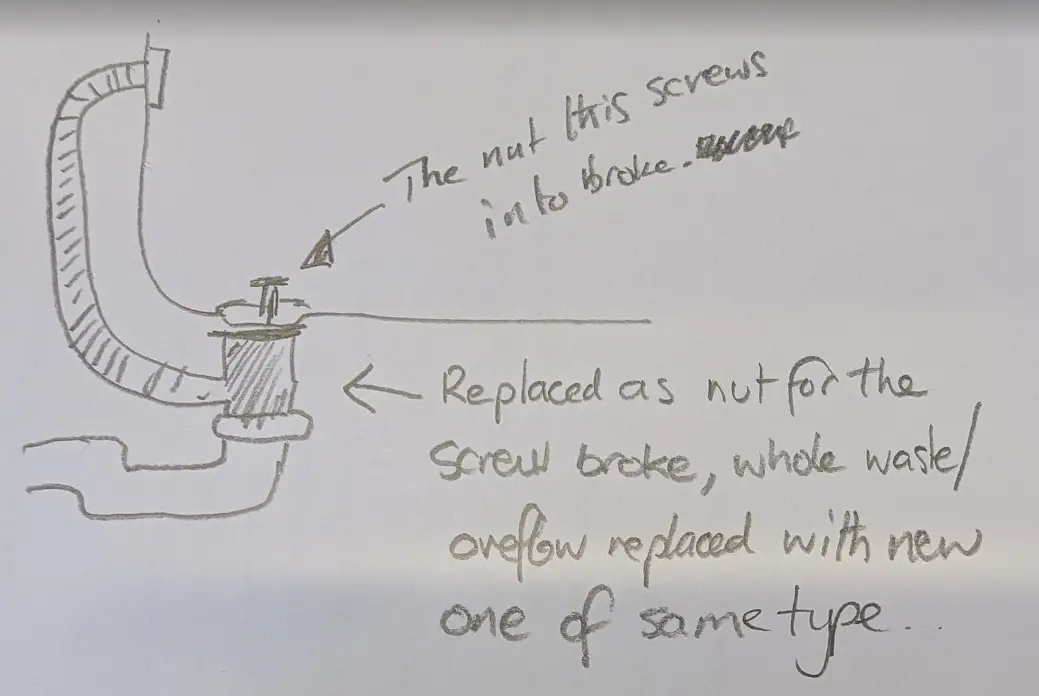 The nut this screws
into broke.
Replaced as nut for the
screw broke, whole waste/
oveflow replaced with new
one of same type...